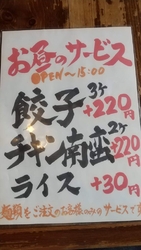 お昼のサービス
OPEN～15:00
餃子 3ケ +220円
チキン南蛮 2ケ +220円
ライス +30円
麺類をご注文のお客様のみのサービスで